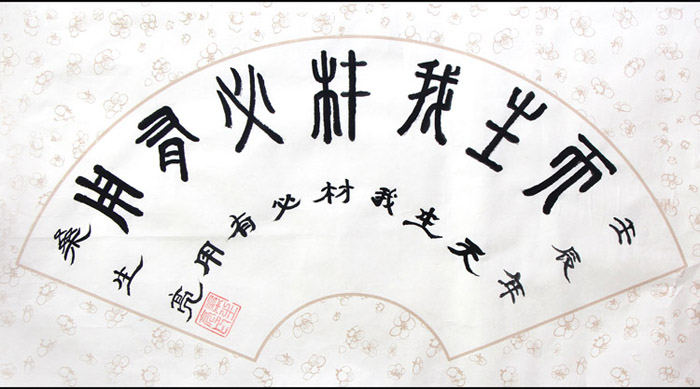 天生我材必有用
壬辰年
天生我材必有用
生亮